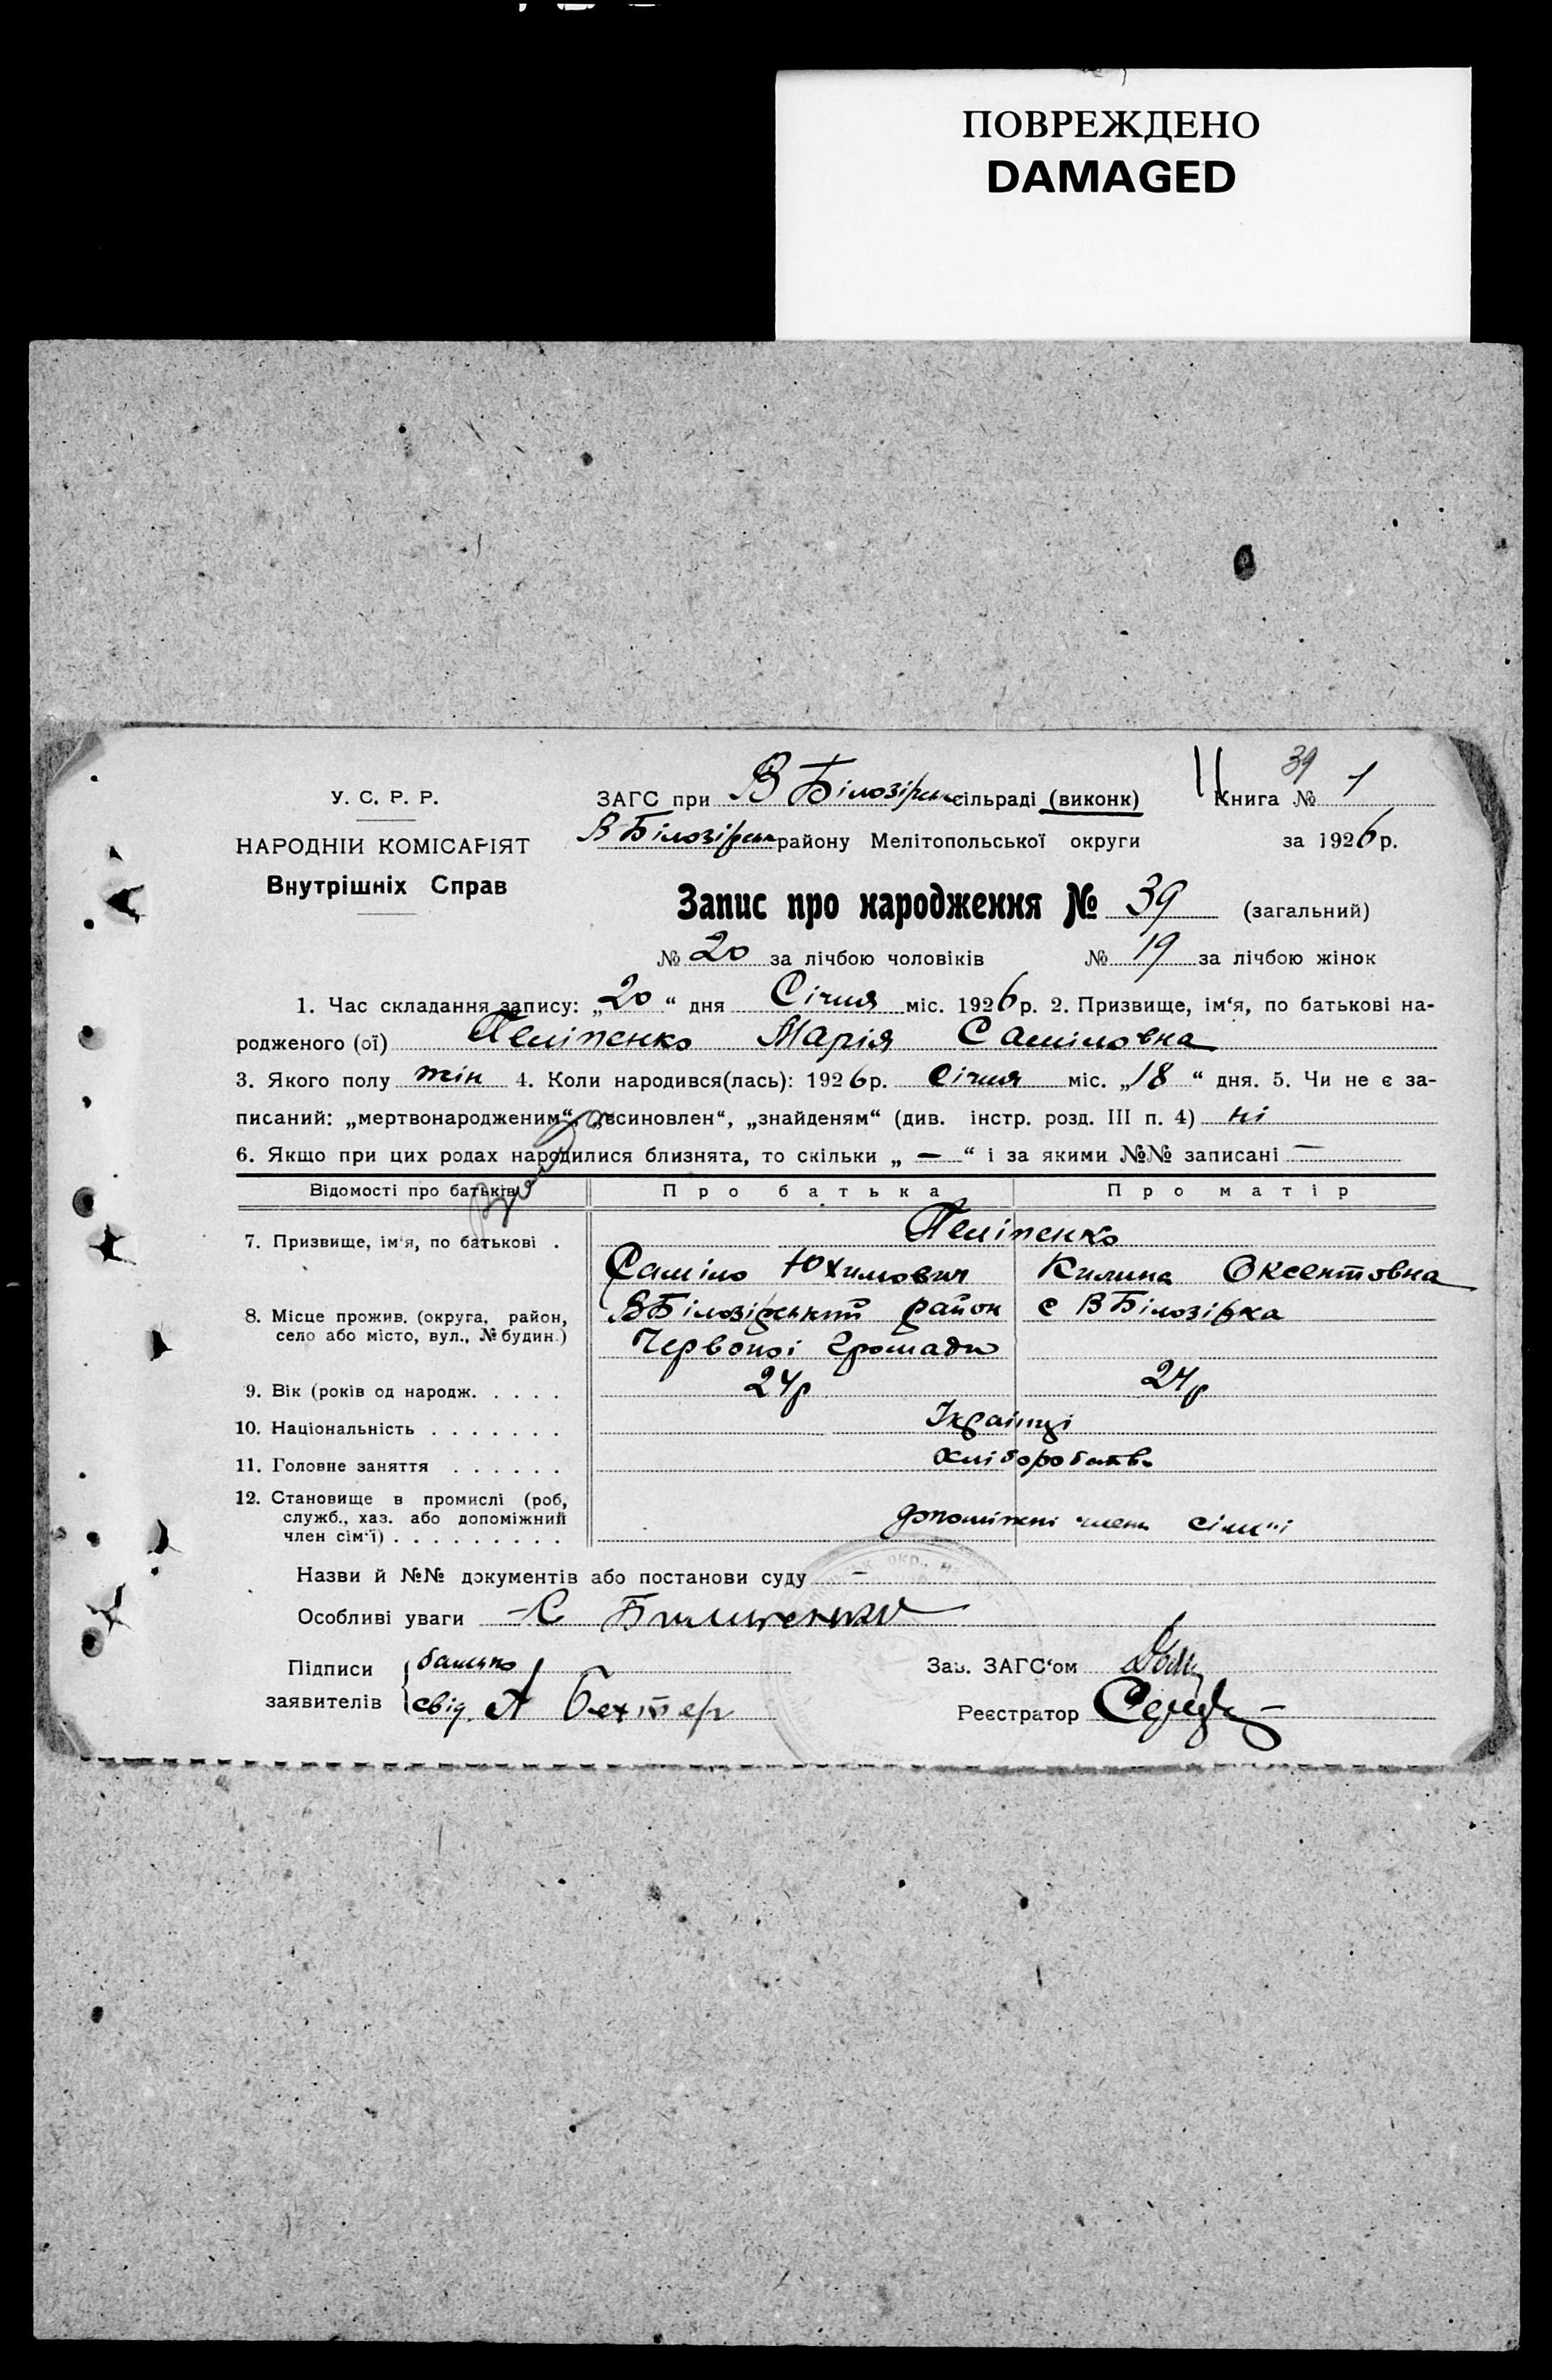 ПОВРЕЖДЕНО
DAMAGED
39
У. С. Р. Р.
ЗАГС при В Білозірск сільраді (виконк) Книга № 1
НАРОДНІЙ КОМІСАРІЯТ
В Білозірск району Мелітопольської округи за 1926 р.
Внутрішніх Справ
Запис про народження № 39 (загальний)
№ 20 за лічбою чоловіків № 19 за лічбою жінок
1. Час складання запису: „20“ дня Січня міс. 1926 р. 2. Призвище, ім‘я, по батькові на-
родженого (ої) Пеліпенко Марія Саміловна
3. Якого полу жін 4. Коли народився(лась): 1926 р. Січня міс. „18“ дня. 5. Чи не є за-
писаний: „мертвонародженим“, „всиновлен“, „знайденям“ (див. інстр. розд. III п. 4) ні
6. Якщо при цих родах народилися близнята, то скільки „ — “ і за якими №№ записані —
Відомості про батьків Про батька Про матір
7. Призвище, ім‘я, по батькові . Пеліпенко
Саміло Юхимович Килина Оксентовна
8. Місце прожив. (округа, район, село або місто, вул., № будин.) В Білозірський район с В Білозірка
Червоної Громади
9. Вік (років од народж. . . . . 24р 24р
10. Національність . . . . . . . Українці
11. Головне заняття . . . . . . Хліборобств
12. Становище в промислі (роб, служб., хаз. або допоміжний член сім‘ї) . . . . . . . . . допоміжні член сімї
Назви й №№ документів або постанови суду —
Особливі уваги —
Підписи заявителів батько
свід. А Бехтер
Зав. ЗАГС‘ом
Реєстратор